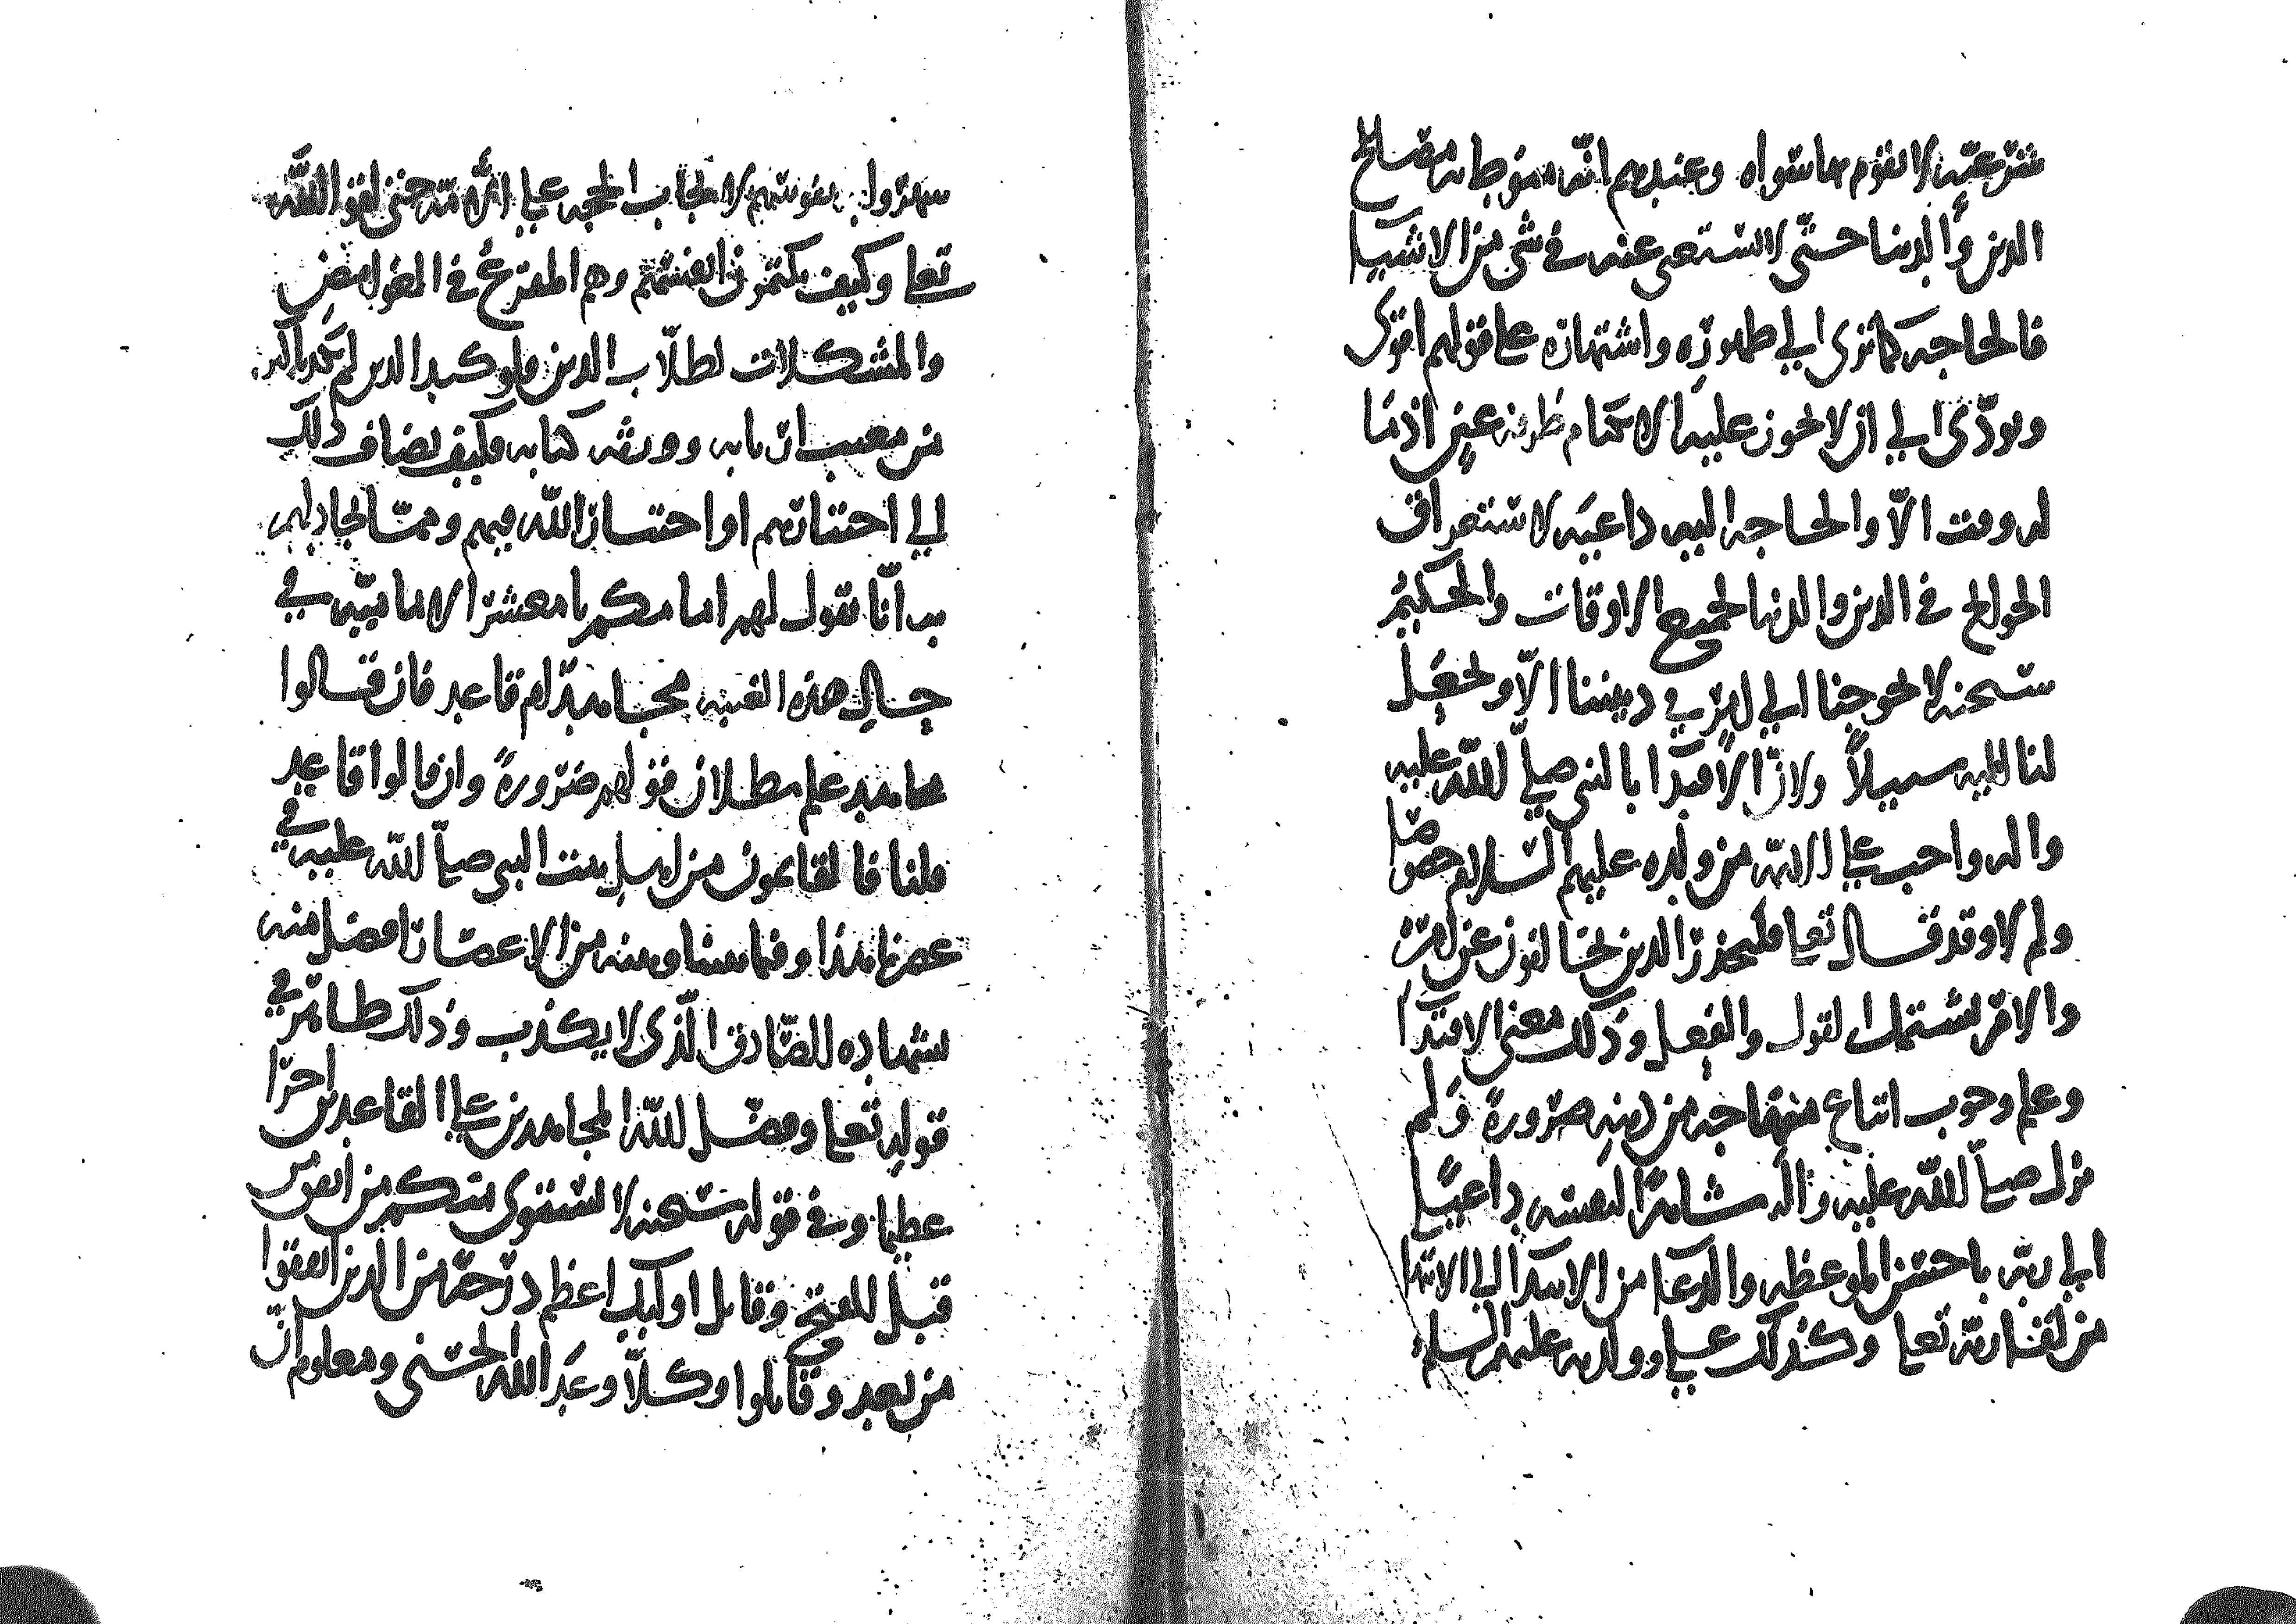 شرعته لا يقوم بها سواه وعندهم انه منوط به مصالح
الدين والدنيا حتى لا يستغنى عنه في شي من الاشيا
فالحاجة كما ترى الى ظهوره واشتهاره على قولهم اقوى
ويودى الى ان لا يجوز عليه الاكتتام طرفة عين اذ ما
له وقت الا والحاجة اليه داعية لاستغراق
الحوايج في الدين والدنيا لجميع الاوقات والحكيم
سبحنه لا يحوجنا الى امر في ديننا الا ويجعل
لنا اليه سبيلا ولان الاقتدا بالنبي صلى الله عليه
واله واجب على الايمة من ولده عليهم السلام خصوصا
ولم لا وقد قال تعالى فليحذر الذين يخالفون عن امره
والامر يشتمل القول والفعل وذلك معنى الاقتدا
وعلم وجوب اتباع منهاجه من دينه ضرورة ولم
يزل صلى الله عليه واله شاهرا لنفسه داعيا
الى ربه باحسن الموعظه والدعا من الابتدا الى الانتها
من لقا ربه تعالى وكذلك علي وولديه عليهم السلم
يشهرون نفوسهم لايجاب الحجه على الامة حتى لقوا الله
تعالى وكيف يكتمون انفسهم وهم المفزع في الغوامض
والمشكلات لطلاب الدين
من معيب ان يابه ووثقه كتابه فكيف يضاف ذلك
الى اختيارهم او اختيار الله فيهم ومما يجاب لهم
به انا نقول لهم امامكم يا معشر الامامية في
حال هذه الغيبه مجاهد ام قاعد فان قالوا
مجاهد علم بطلان قولهم ضرورة وان قالوا قاعد
قلنا فالقايمون من اهل بيت النبي صلى الله عليه في
عصرنا هذا وفيما يشاومنه من الاعصار افضل منه
بشهاده الصادق الذى لا يكذب وذلك ظاهر في
قوله تعالى وفضل الله المجاهدين على القاعدين اجرا
عظيما وفي قوله سبحنه لا يستوى منكم من انفق من
قبل الفتح وقاتل اوليك اعظم درجة من الذين انفقوا
من بعد وقاتلوا وكلا وعد الله الحسنى ومعلوم ان